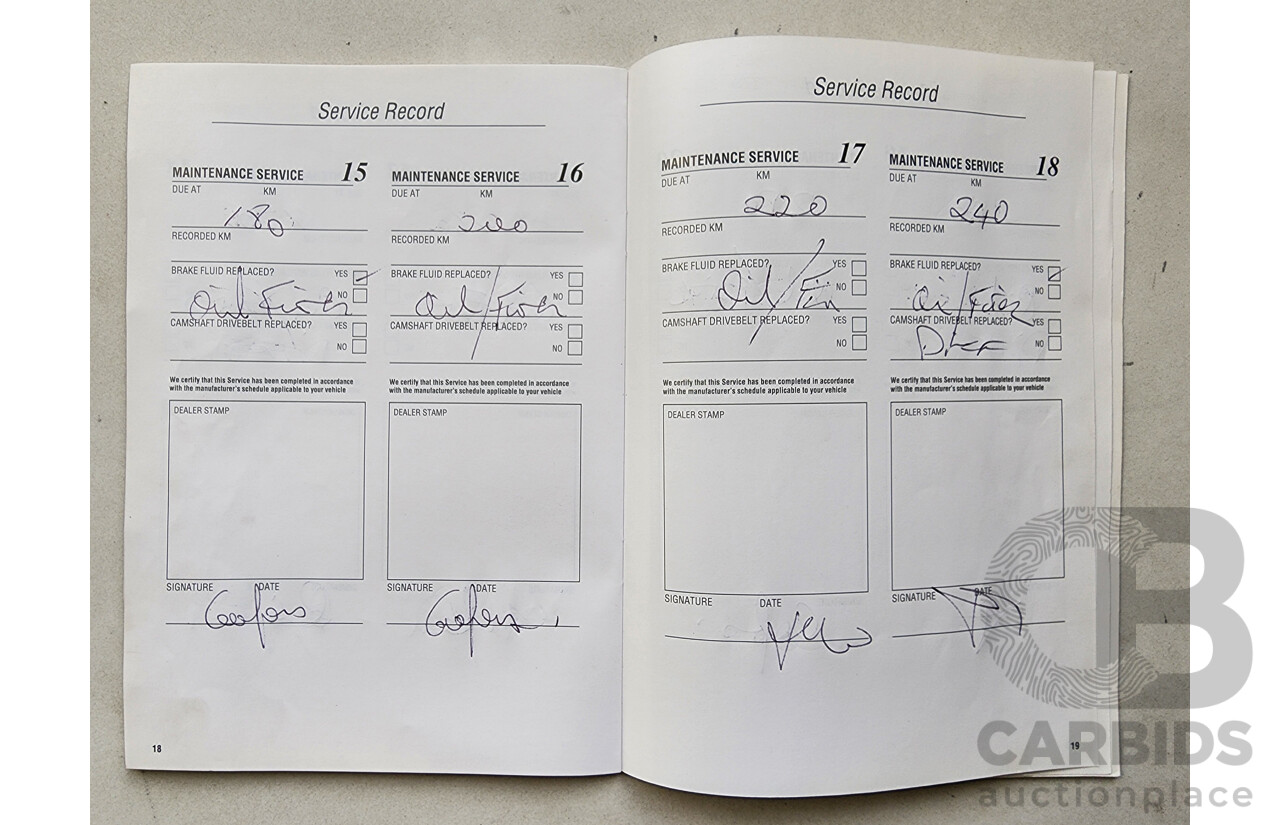 Service Record
MAINTENANCE SERVICE 15
DUE AT KM
180
RECORDED KM
BRAKE FLUID REPLACED? YES
NO
Oil
CAMSHAFT DRIVEBELT REPLACED? YES
NO
We certify that this Service has been completed in accordance
with the manufacturer's schedule applicable to your vehicle
DEALER STAMP
SIGNATURE DATE
MAINTENANCE SERVICE 16
DUE AT KM
200
RECORDED KM
BRAKE FLUID REPLACED? YES
NO
Oil
CAMSHAFT DRIVEBELT REPLACED? YES
NO
We certify that this Service has been completed in accordance
with the manufacturer's schedule applicable to your vehicle
DEALER STAMP
SIGNATURE DATE
18
Service Record
MAINTENANCE SERVICE 17
DUE AT KM
220
RECORDED KM
BRAKE FLUID REPLACED? YES
NO
Oil
CAMSHAFT DRIVEBELT REPLACED? YES
NO
We certify that this Service has been completed in accordance
with the manufacturer's schedule applicable to your vehicle
DEALER STAMP
SIGNATURE DATE
MAINTENANCE SERVICE 18
DUE AT KM
240
RECORDED KM
BRAKE FLUID REPLACED? YES
NO
Oil
CAMSHAFT DRIVEBELT REPLACED? YES
NO
We certify that this Service has been completed in accordance
with the manufacturer's schedule applicable to your vehicle
DEALER STAMP
SIGNATURE DATE
19
CB
CARBIDS
auctionplace